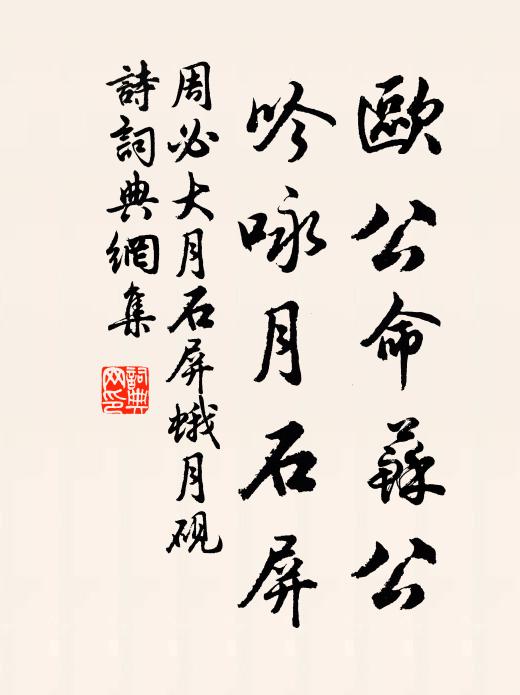 歐公命蘇公
吟咏月石屏
周必大月石屏蛾月硯
詩詞典網集